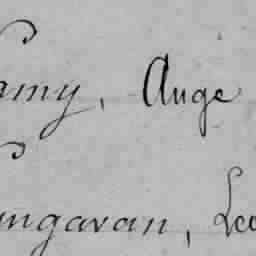 amy, Ange
ngaran, Leo